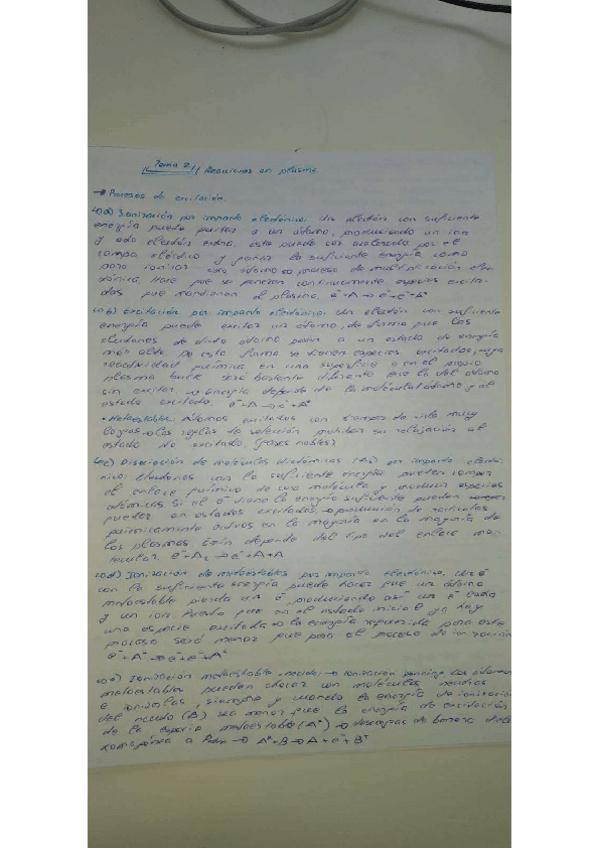 Tema 2 // Reacciones en plasma.
→ Procesos de excitación.
a) Ionización por impacto electrónico: Un electrón con suficiente
energía puede quitar e⁻ a un átomo, produciendo un ion
y otro electrón extra, este puede ser acelerado por el
campo eléctrico y ganar la suficiente energía como
para ionizar otro átomo → proceso de multiplicación elec-
trónica. Hace que se generen continuamente especies excita-
das que mantienen el plasma.
b) Excitación por impacto electrónico: Un electrón con suficiente
energía puede excitar un átomo, de forma que los
electrones de dicho átomo pasan a un estado de energía
más alto. De esta forma se tienen especies excitadas, cuya
reactividad química en una superficie o en el propio
plasma bulk será bastante diferente que la del átomo
sin excitar. → energía depende de la molécula/átomo y el
estado excitado. e⁻+A → e⁻+A*
• Metaestable: Átomos excitados con tiempos de vida muy
largos → las reglas de selección prohíben su relajación al
estado no excitado. (gases nobles)
c) Disociación de moléculas diatómicas (A₂) por impacto electró-
nico: Electrones con la suficiente energía pueden romper
el enlace químico de una molécula y producir especies
atómicas. Si el e⁻ tiene la energía suficiente pueden
quedar en estados excitados → producción de radicales
químicamente activos en la mayoría en la mayoría de
los plasmas. depende del tipo del enlace mo-
lecular. e⁻+A₂ → e⁻+A+A
d) Ionización de metaestables por impacto electrónico. Un e⁻
con la suficiente energía puede hacer que un átomo
metaestable pierda un e⁻, produciendo así un e⁻ extra
y un ion. Puesto que en el estado inicial ya hay
una especie excitada → la energía requerida para este
proceso será menor que para el proceso de ionización
e) Ionización metaestable-neutro: → ionización penning. Los átomos
metaestables pueden chocar con moléculas neutras
e ionizarlas, siempre y cuando la energía de ionización
del neutro (B) sea menor que la energía de excitación
de la especie metaestable (A*) → descargas de barrera diele
A*+B → A+e⁻+B⁺